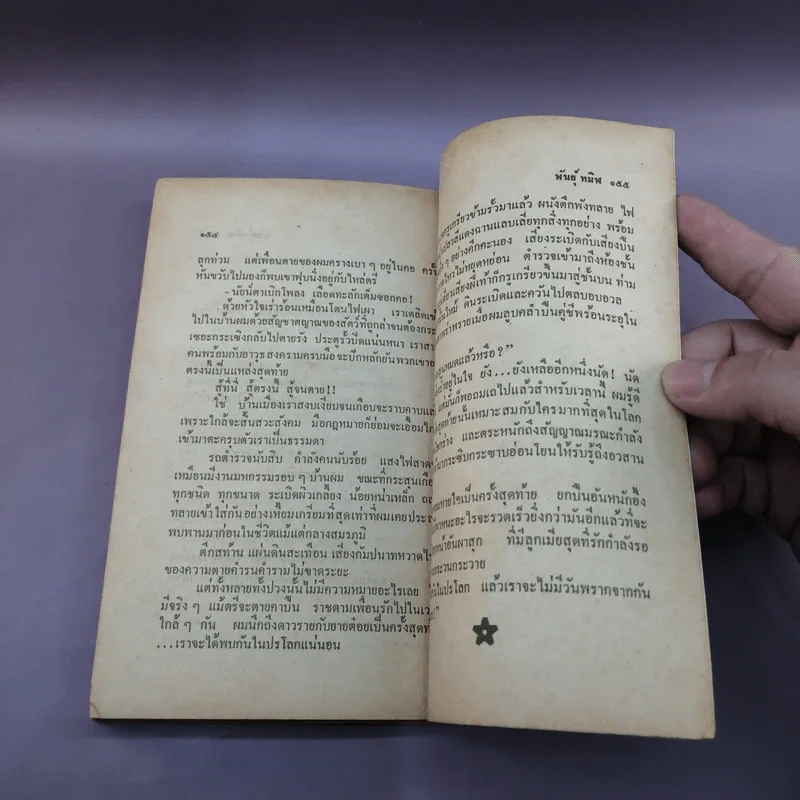 ๑๕๔
ลูกท่วม แต่เพื่อนตายของผมครางเบา ๆ อยู่ในคอ ครั้น
หันขวับไปมองก็พบเขาฟุบนิ่งอยู่กับไหล่ตรี
- นัยน์ตาเบิกโพลง เลือดทะลักเต็มซอกคอ!
ด้วยหัวใจเร่าร้อนเหมือนโดนไฟเผา เราเตลิดเข้
ไปในบ้านผมด้วยสัญชาตญาณของสัตว์ที่ถูกล่าจนต้องกระ
เซอะกระเซิงกลับไปตายรัง ประตูรั้วปิดแน่นหนา เราสา
คนพร้อมกับอาวุธสงครามครบมือจะปักหลักยันพวกเขาอ
ตรงนี้เป็นแหล่งสุดท้าย
สู้ที่นี่ สู้ตรงนี้ สู้จนตาย!!
ใช่ บ้านเมืองเราสงบเงียบจนเกือบจะราบคาบแล้
เพราะใกล้จะสิ้นสวะสังคม มือกฎหมายก็ย่อมจะเอื้อมไก
เข้ามาตะครุบตัวเราเป็นธรรมดา
รถตำรวจนับสิบ กำลังคนนับร้อย แสงไฟสาดจ
เหมือนมีงานมหกรรมรอบ ๆ บ้านผม ขณะที่กระสุนเกือ
ทุกชนิด ทุกขนาด ระเบิดผิวเกลี้ยง น้อยหน่าเหล็ก ถล
ทลายเข้าใส่กันอย่างเหี้ยมเกรียมที่สุดเท่าที่ผมเคยประส
พบพานมาก่อนในชีวิตแม้แต่กลางสมรภูมิ
ตึกสท้าน แผ่นดินสะเทือน เสียงกัมปนาทหวาดไห
ของความตายคำรนคำรามไม่ขาดระยะ
แต่ทั้งหลายทั้งปวงนั้นไม่มีความหมายอะไรเลย
มีจริง ๆ แม้ตรีจะตายคาปืน ราชตามเพื่อนรักไปในเว
ใกล้ ๆ กัน ผมนึกถึงดาวรายกับยายต๋อยเป็นครั้งสุดท้
...เราจะได้พบกันในปรโลกแน่นอน
พันธุ์ ทมิฬ ๑๕๕
กรูเกรียวข้ามรั้วมาแล้ว ผนังตึกพังทลาย ไฟ
แดงฉานแลบเลียทุกสิ่งทุกอย่าง พร้อม
ๆ อย่างคึกคะนอง เสียงระเบิดกับเสียงปืน
ไหวไม่หยุดหย่อน ตำรวจเข้ามาถึงห้องชั้น
เสียงฝีเท้าก็กรูเกรียวขึ้นมาสู่ชั้นบน ท่าม
ไหม้ ดินระเบิดและควันไปตลบอบอวล
พร่าพรายเมื่อผมลูบคลำปืนคู่ชีพร้อนระอุใน
หมดแล้วหรือ?"
อยู่ในใจ ยัง...ยังเหลืออีกหนึ่งนัด! นัด
แต่มันก็พอถมเถไปแล้วสำหรับเวลานี้ ผมรู้ดี
ท้ายนั้นเหมาะสมกับใครมากที่สุดในโลก
กร่าง และตระหนักถึงสัญญาณมรณะกำลัง
มากระซิบกระซาบอ่อนโยนให้รับรู้ถึงอวสาน
หายใจเป็นครั้งสุดท้าย ยกปืนอันหนักอึ้ง
พาหนะอะไรจะรวดเร็วยิ่งกว่ามันอีกแล้วที่จะ
หน้าอันผาสุก ที่มีลูกเมียสุดที่รักกำลังรอ
กระวนกระวาย
ในปรโลก แล้วเราจะไม่มีวันพรากจากกัน